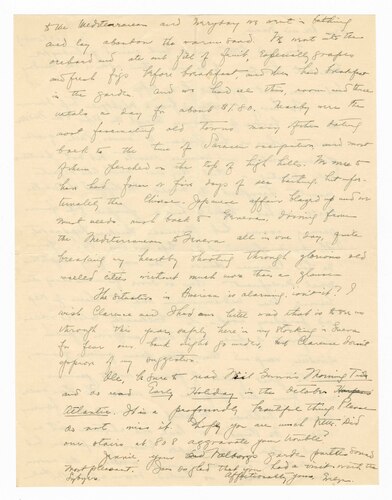 to the Mediterranean and everyday we went in bathing
and lay about on the warm sand. We went into the
orchard and ate out fill of fruit, especially grapes
and fresh figs before breakfast and then had breakfast
in the garden. And we had all this, room and three
meals a day for about $1.80. Nearby were the
most fascinating old towns many of them dating
back to the time of Saracen occupation and most
of them perched on the top of high hills. We were to
have had four or five days of sea bathing, but unfor-
tunately the Chinese-Japanese affair blazed up and so we
must needs rush back to Geneva, driving from
the Mediterranean to Geneva all in one day, quite
breaking my heart by shooting through glorious old
walled cities without much more than a glance.
The situation in America is alarming, isn't it? I
wish Clarence and I had our little wad that is to see us
through this year safely here in my stocking in Geneva
for fear our bank might go under, but Clarence doesn't
approve of my suggestion.
Oh, be sure to read Neil Gunn's Morning Tide
and so read Early Holiday in the October
Atlantic. It is a profoundly beautiful thing. Please
do not miss it. I hope you are much better. Did
our stairs at 808 aggravate your trouble?
Jennie, your and garden parties sound
most pleasant. I'm so glad that you had a visit with the
affectionately yours,